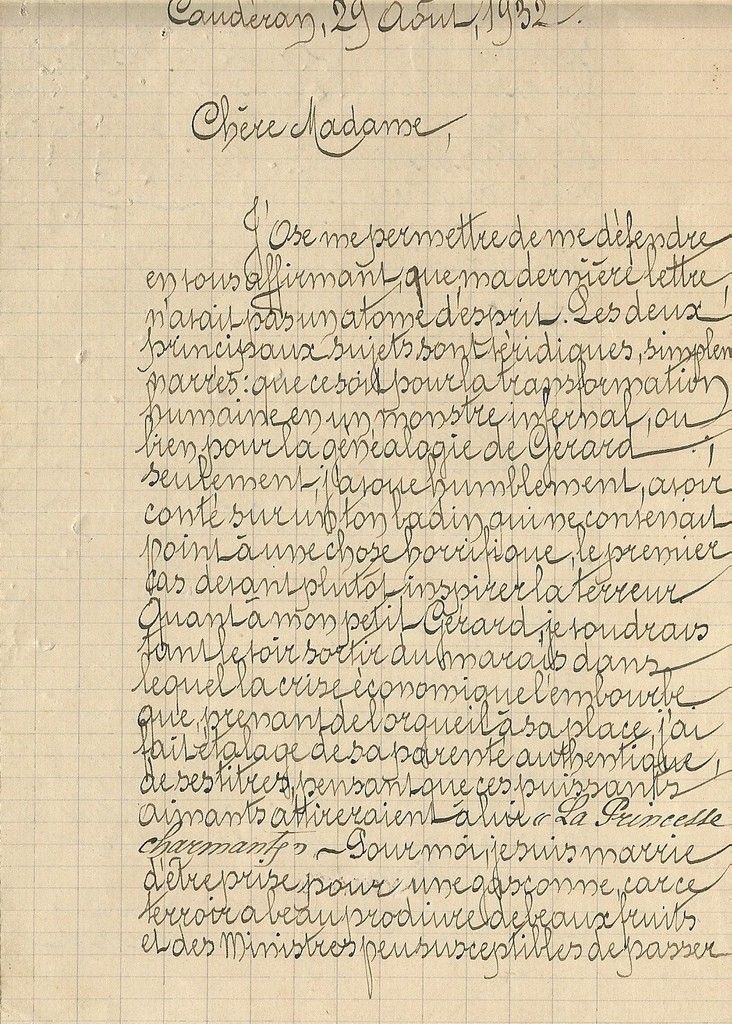 Caudéran, 29 Août, 1932.
Chère Madame,
J'Ose me permettre de me défendre
en vous affirmant, que, ma dernière lettre,
n'avait pas un atome d'esprit. Les deux
principaux sujets sont véridiques, simplem
narrés: que ce soit pour la transformation
humaine en un monstre infernal, ou
bien, pour la généalogie de Gérard ;
seulement, j'avoue humblement, avoir
conté sur un ton badin qui ne convenait
point à une chose horrifique, le premier
cas devant plutôt inspirer la terreur.
Quant à mon petit Gérard, je voudrais
tant le voir sortir du marais dans
lequel la crise économique l'embourbe
que, prenant de l'orgueil à sa place, j'ai
fait étalage de sa parenté authentique,
de ses titres, pensant que ces puissants
aimants attireraient à lui « La Princesse
charmante ». — Pour moi, je suis marrie
d'être prise pour une gasconne, car ce
terroir a beau produire de beaux fruits
et des Ministres peu susceptibles de passer